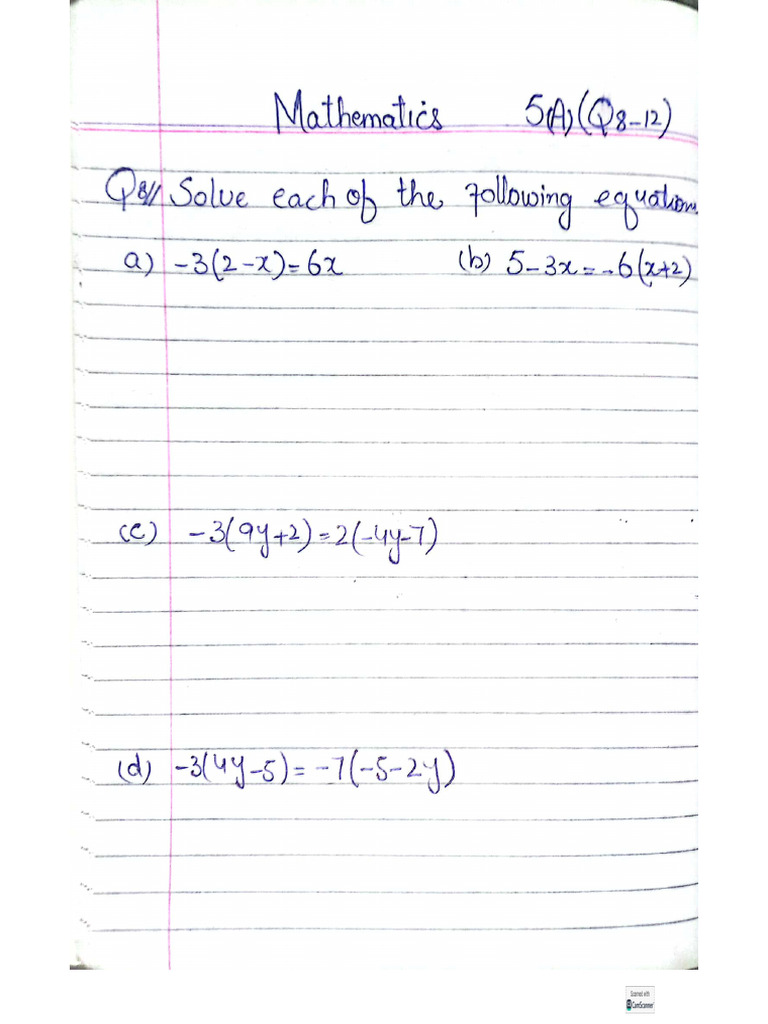 Mathematics 5(A)(Q8-12)
Q8// Solve each of the following equation.
a) -3(2-x)=6x (b) 5-3x=-6(x+2)
(c) -3(9y+2)=2(-4y-7)
(d) -3(4y-5)=-7(-5-2y)
Scanned with
CamScanner